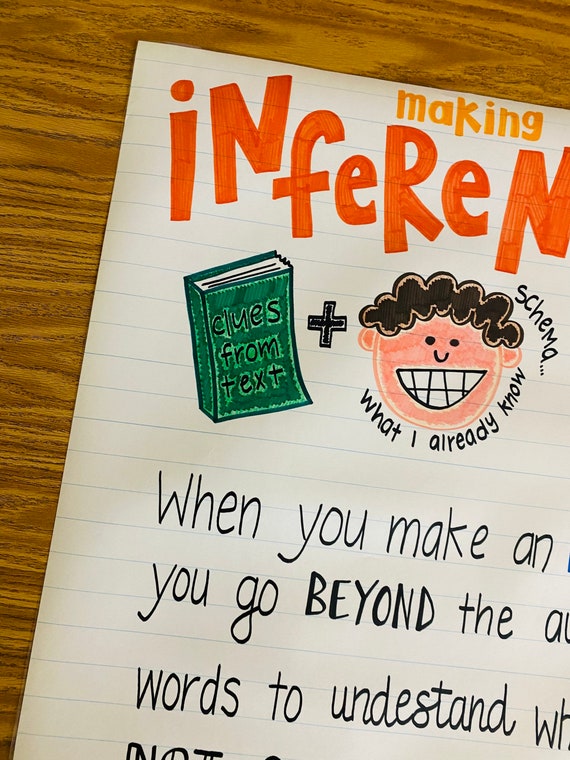 making
iNfeReN
clues
from
text
+
schema...
what I already know
When you make an
you go BEYOND the au
words to undestand wh
NOT